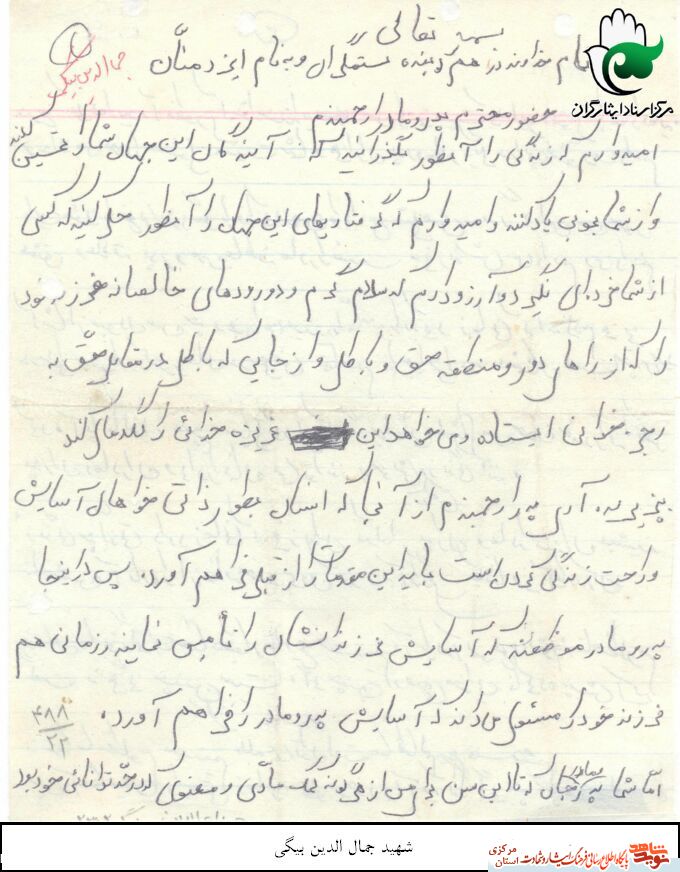 بسمه تعالی
بنام خداوند در هم کوبنده ستمگران و به نام ایزد منّان
جمال الدین بیگی
مرکز اسناد ایثارگران
حضور محترم پدر و مادر ارجمندم
امیدوارم که زندگی را آنطور بگذرانید که آیندگان این جهان شما را تحسین کنند
و از شما بخوبی یاد کنند و امیدوارم که گرفتاریهای این جهان را آنطور حل کنید که کسی
از شما خرده‌ای نگیرد و آرزو دارم که سلام گرم و درودهای خالصانه فرزند خود
را که از راهای دور و منطقه حق و باطل و از جایی که باطل در مقابل حق به
رجز خوانی ایستاده و می خواهد این غریزه خدائی را لگدمال کند
بپذیرید. آری پدر ارجمندم از آنجا که انسان بطور ذاتی خواهان آسایش
و راحت زندگی کردن است باید این مقدمات را از قبل فراهم آورد. پس در اینجا
پدر و مادر موظفند که آسایش فرزندانشان را تأمین نمایند و زمانی هم
فرزند خود را مسئول می داند که آسایش پدر و مادر را فراهم آورد.
۴۸۸
۲۲
امّا شما پدر و مادر که تا این سن برای من از هرگونه کمک مادّی و معنوی که در حدّ توانائی خود بود
شهید جمال الدین بیگی
نوید شاهد
پایگاه اطلاع رسانی فرهنگ ایثار و شهادت
استان مرکزی